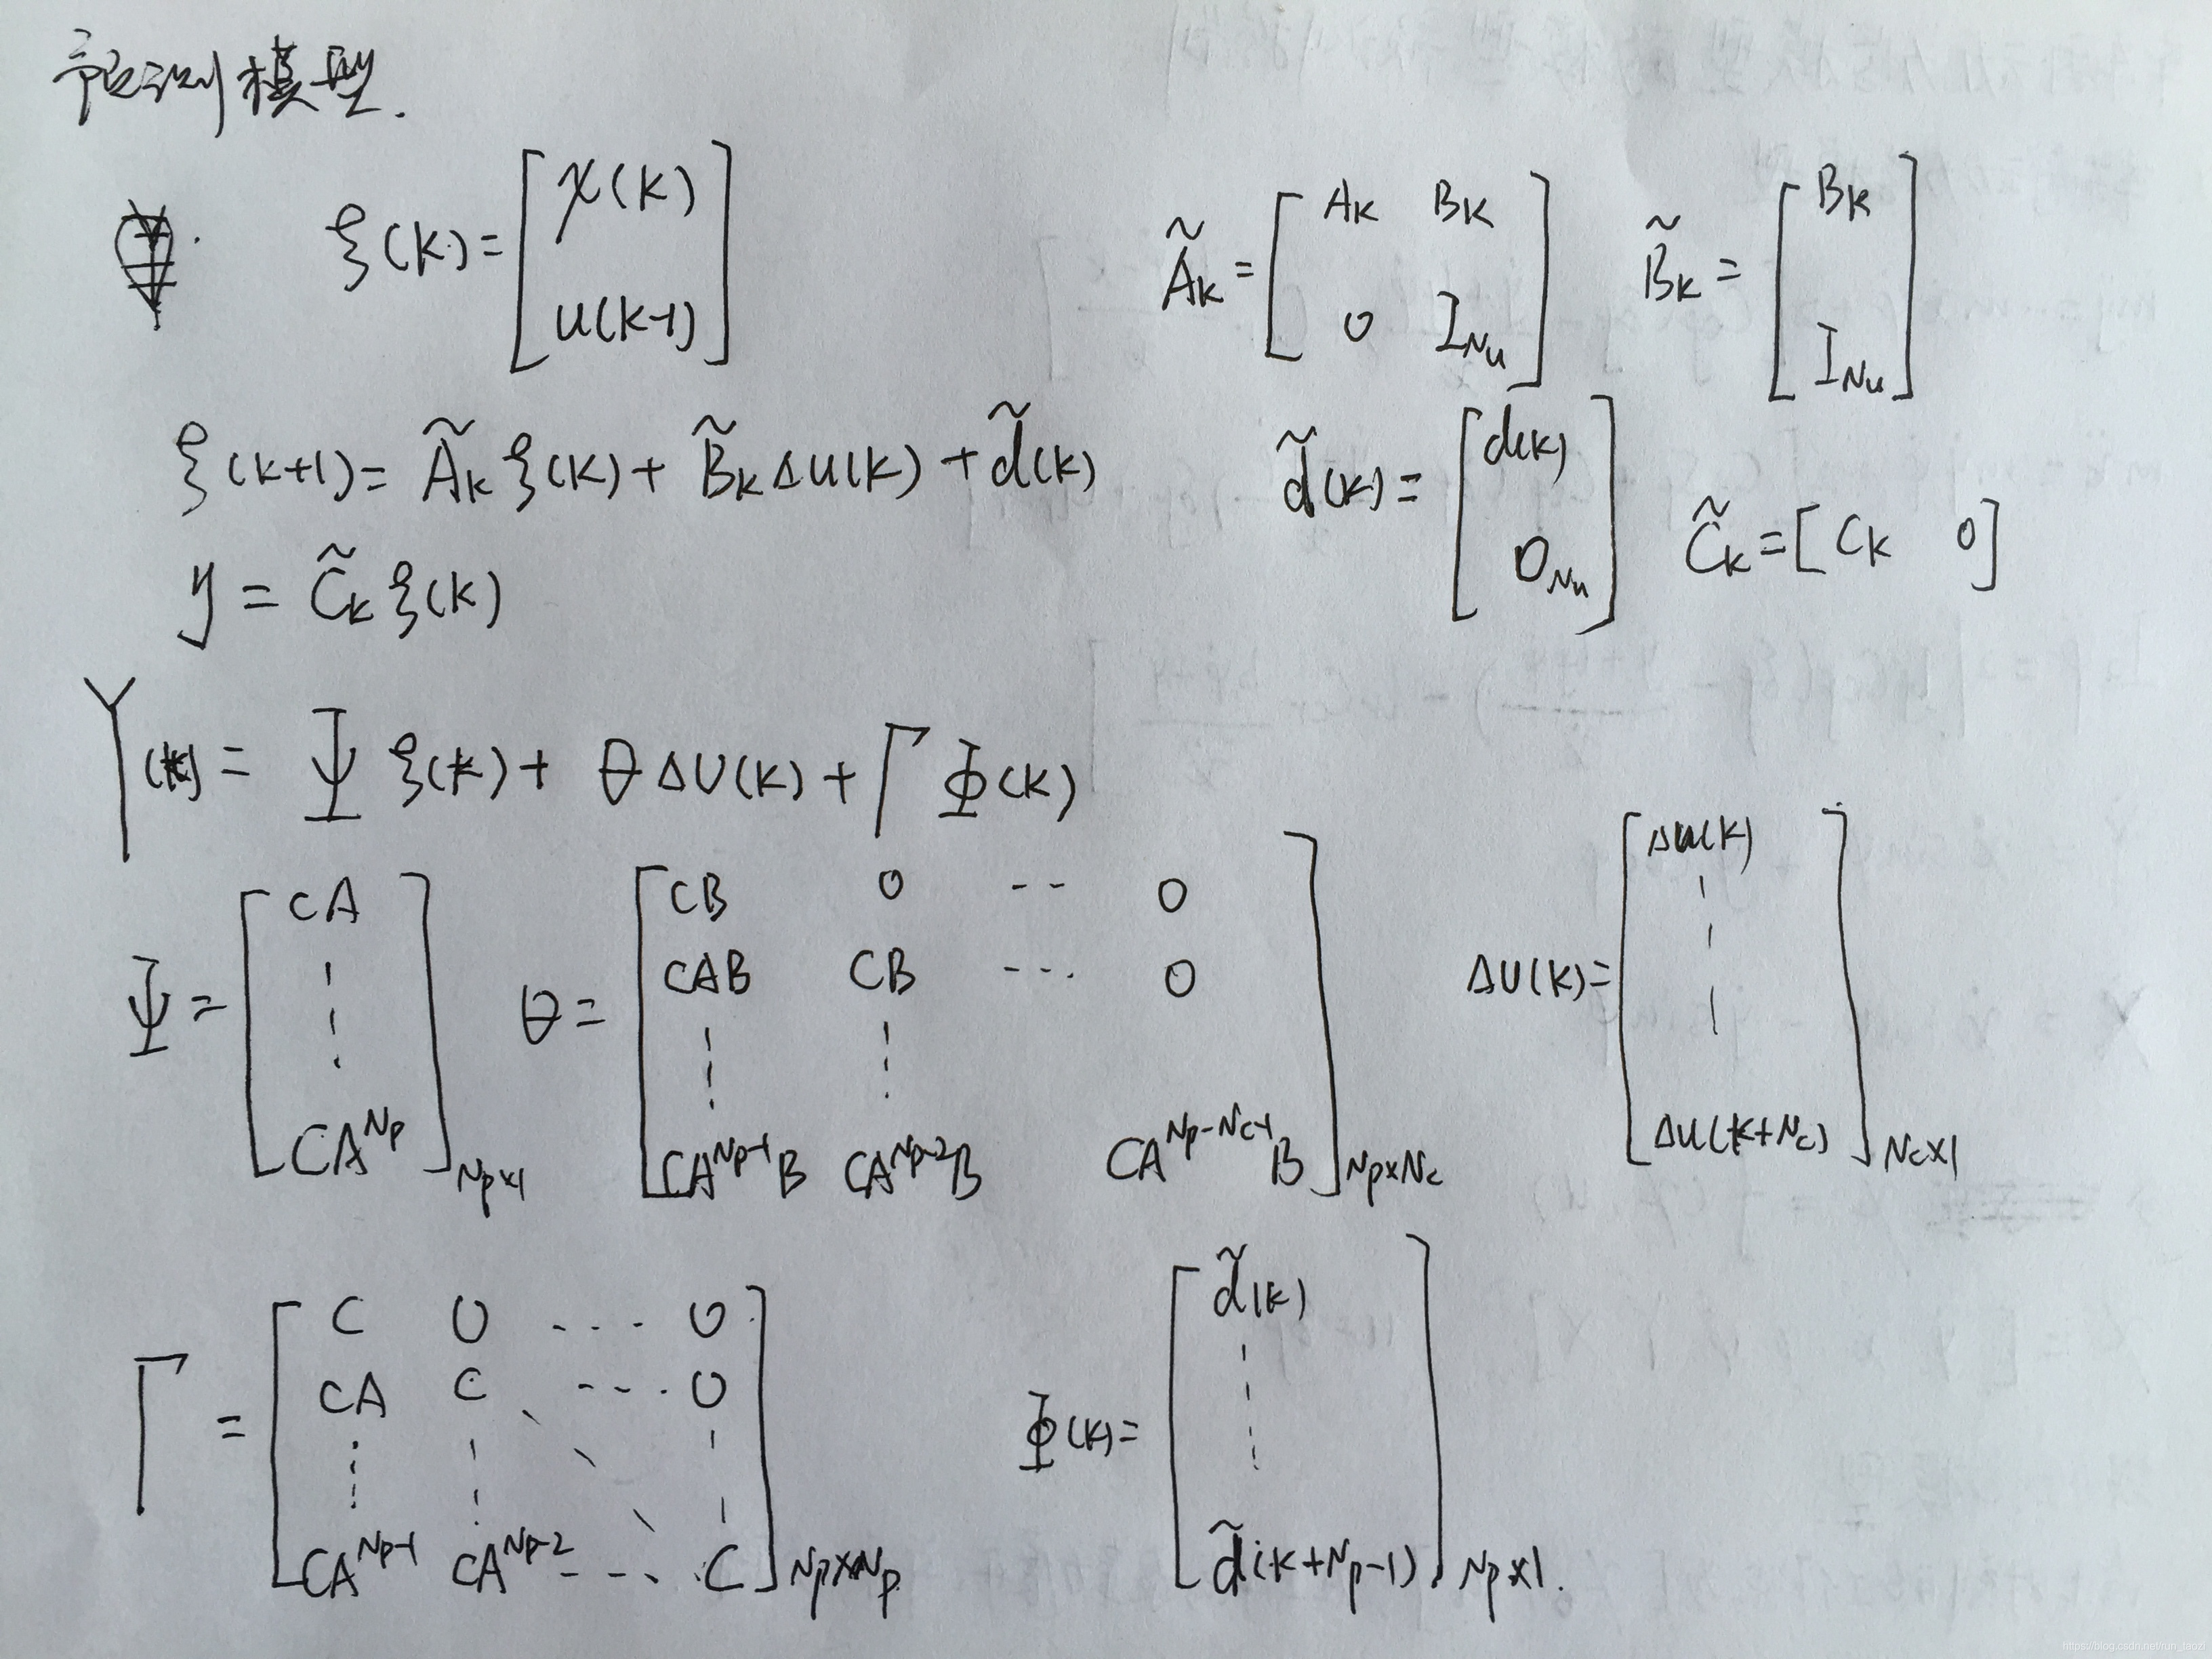 预测模型.
ξ(k) = [ x(k) ; u(k-1) ]
Ãk = [ Ak Bk ; 0 I_Nu ]
B̃k = [ Bk ; I_Nu ]
ξ(k+1) = Ãk ξ(k) + B̃k Δu(k) + d̃(k)
d̃(k) = [ d(k) ; 0_Nu ]
C̃k = [ Ck 0 ]
y = C̃k ξ(k)
Y(k) = Ψ ξ(k) + θ ΔU(k) + Γ Φ(k)
Ψ = [ CA ; ⋮ ; CA^Np ]_Np×1
θ = [ CB 0 -- 0 ; CAB CB --- 0 ; ⋮ ⋮ ; CA^Np-1 B CA^Np-2 B CA^Np-Nc-1 B ]_Np×Nc
ΔU(k) = [ Δu(k) ; ⋮ ; Δu(k+Nc) ]_Nc×1
Γ = [ C 0 --- 0 ; CA C --- 0 ; ⋮ ⋮ ⋱ ⋮ ; CA^Np-1 CA^Np-2 --- C ]_Np×Np
Φ(k) = [ d̃(k) ; ⋮ ; d̃(k+Np-1) ]_Np×1.
https://blog.csdn.net/run_taozi